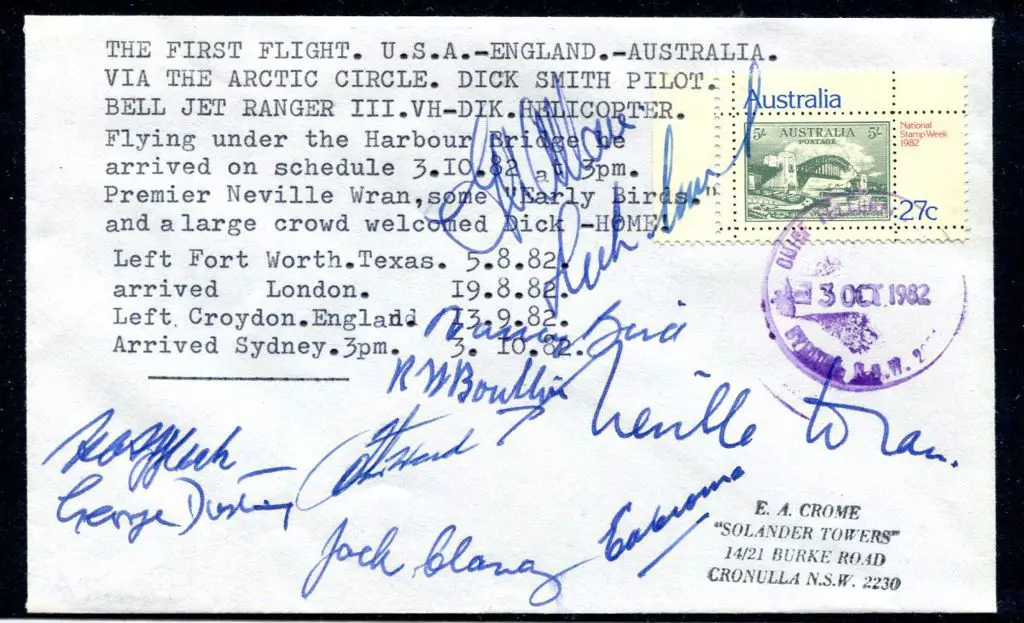 THE FIRST FLIGHT. U.S.A.-ENGLAND.-AUSTRALIA.
VIA THE ARCTIC CIRCLE. DICK SMITH PILOT.
BELL JET RANGER III.VH-DIK.HELICOPTER.
Flying under the Harbour Bridge he
arrived on schedule 3.IO.82 at 3pm.
Premier Neville Wran,some "Early Birds"
and a large crowd welcomed Dick -HOME!
Left Fort Worth.Texas. 5.8.82.
arrived London. I9.8.82.
Left Croydon.England I3.9.82.
Arrived Sydney.3pm. 3. IO.82.
Australia
5/- AUSTRALIA 5/-
POSTAGE
National
Stamp Week
1982
27c
3 OCT 1982
SYDNEY N.S.W.
Nancy Bird
Neville Wran.
George
Jack
E. A. CROME
"SOLANDER TOWERS"
14/21 BURKE ROAD
CRONULLA N.S.W. 2230